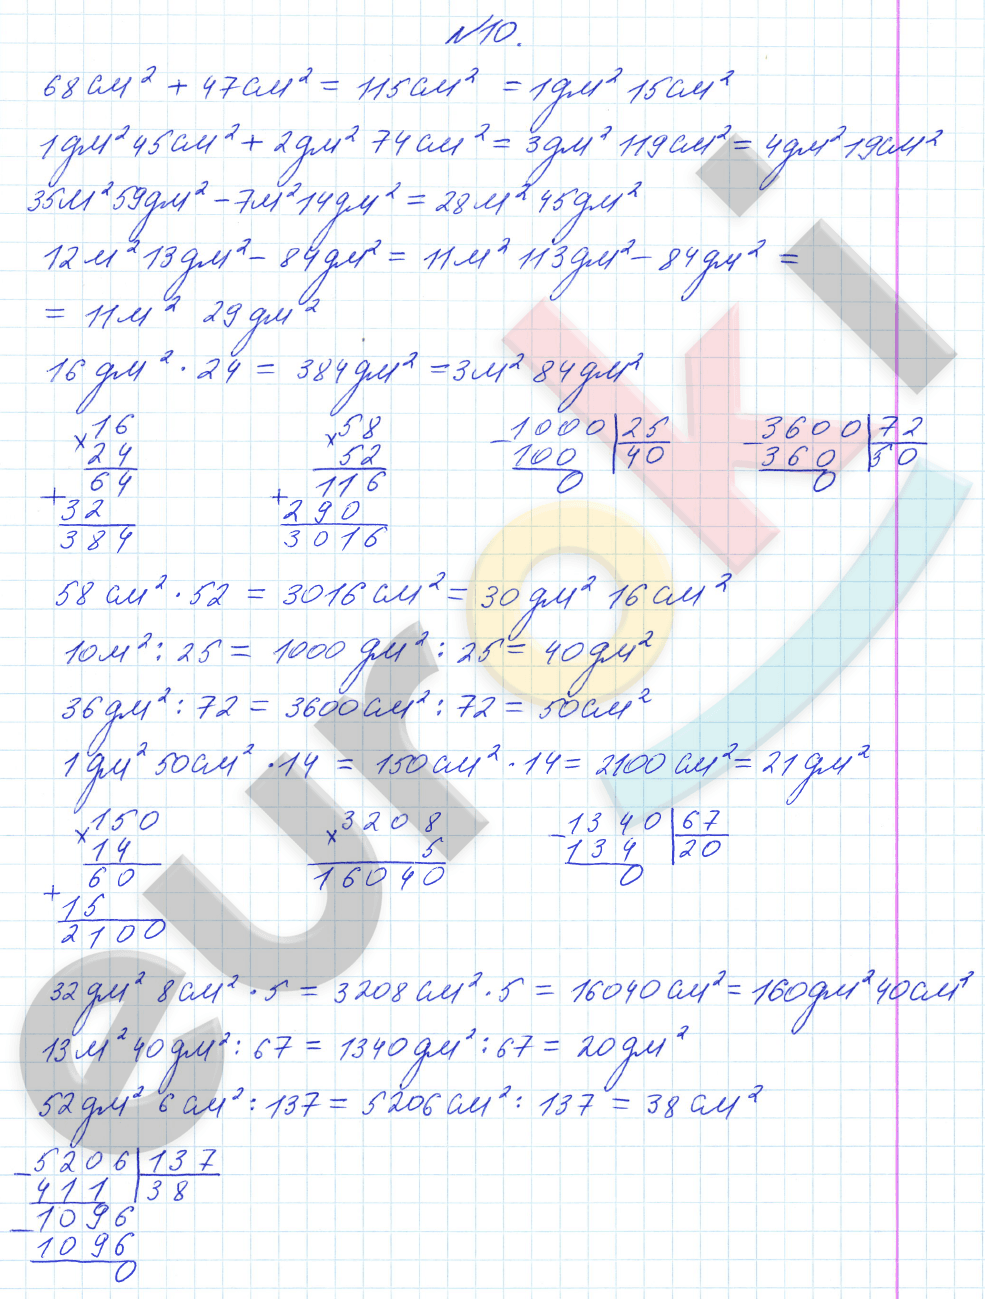 №10.
68 см² + 47 см² = 115 см² = 1 дм² 15 см²
1 дм² 45 см² + 2 дм² 74 см² = 3 дм² 119 см² = 4 дм² 19 см²
35 м² 59 дм² - 7 м² 14 дм² = 28 м² 45 дм²
12 м² 13 дм² - 84 дм² = 11 м² 113 дм² - 84 дм² =
= 11 м² 29 дм²
16 дм² · 24 = 384 дм² = 3 м² 84 дм²
× 16
24
64
+ 32
384
× 58
52
116
+ 290
3016
- 1000 | 25
100 | 40
0
- 3600 | 72
360 | 50
0
58 см² · 52 = 3016 см² = 30 дм² 16 см²
10 м² : 25 = 1000 дм² : 25 = 40 дм²
36 дм² : 72 = 3600 см² : 72 = 50 см²
1 дм² 50 см² · 14 = 150 см² · 14 = 2100 см² = 21 дм²
× 150
14
60
+ 15
2100
× 3208
5
16040
- 1340 | 67
134 | 20
0
32 дм² 8 см² · 5 = 3208 см² · 5 = 16040 см² = 160 дм² 40 см²
13 м² 40 дм² : 67 = 1340 дм² : 67 = 20 дм²
52 дм² 6 см² : 137 = 5206 см² : 137 = 38 см²
- 5206 | 137
411 | 38
- 1096
1096
0
euroki